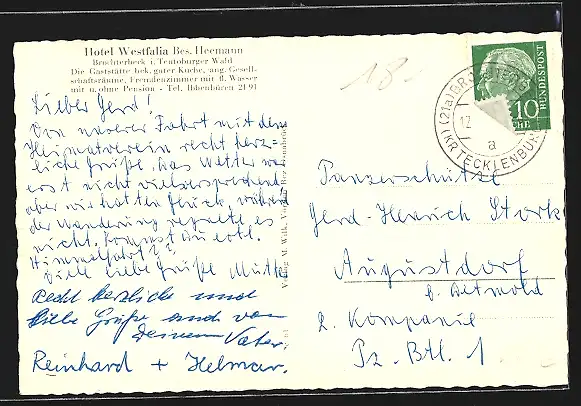 Hotel Westfalia Bes. Heemann
Brochterbeck i. Teutoburger Wald
Die Gaststätte bek. guter Küche, ang. Gesell-
schaftsräume, Fremdenzimmer mit fl. Wasser
mit u. ohne Pension - Tel. Ibbenbüren 21 91
18.-
Lieber Gerd!
Von unserer Fahrt mit dem
Heimatverein recht herz-
liche Grüße. Das Wetter war
erst nicht vielversprechend
aber wir hatten Glück, während
der Wanderung regnete es
nicht. Kommst Du evtl.
Himmelfahrt??
Viele liebe Grüße Mutti
Recht herzliche und
liebe Grüße auch von
Deinem Vater.
Reinhard + Helmar.
DEUTSCHE BUNDESPOST
10
(21a)
12
a
(KR TECKLENBURG)
Panzerschütze
Gerd-Heinrich Stork
Augustdorf
b. Detmold
2. Kompanie
Pz. Btl. 1